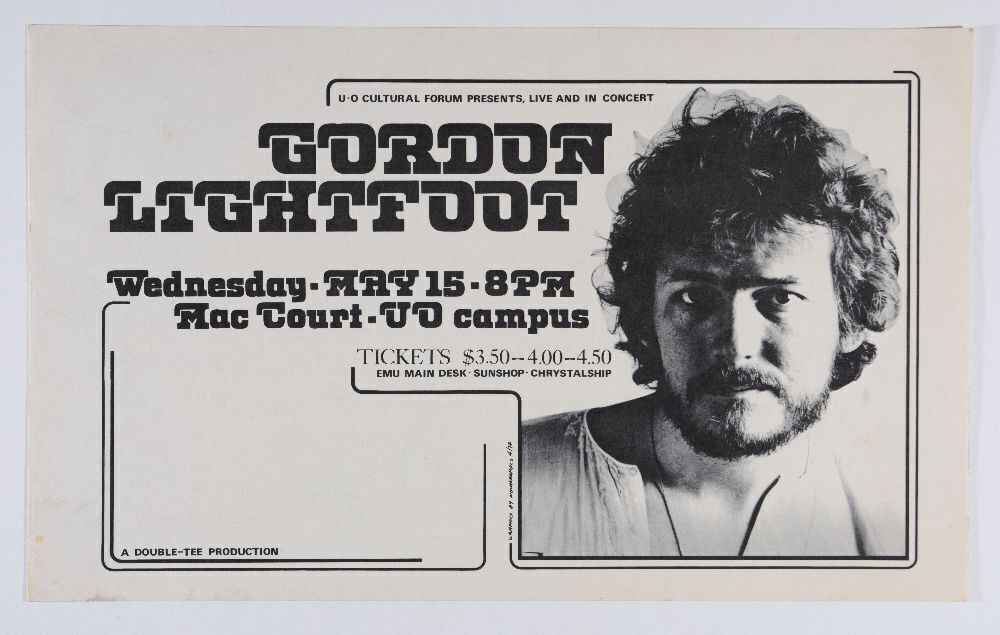 U·O CULTURAL FORUM PRESENTS, LIVE AND IN CONCERT
GORDON
LIGHTFOOT
Wednesday·MAY 15·8PM
Mac Court·UO campus
TICKETS $3.50--4.00--4.50
EMU MAIN DESK·SUNSHOP·CHRYSTALSHIP
GRAPHICS BY 4/74
A DOUBLE-TEE PRODUCTION